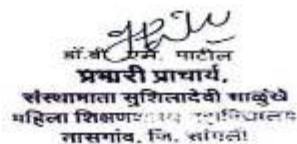 डॉ.बी एम. पाटील
प्रभारी प्राचार्य,
संस्थामाता सुशिलादेवी साळुंखे
महिला शिक्षणशास्त्र महाविद्यालय
तासगांव, जि. सांगली